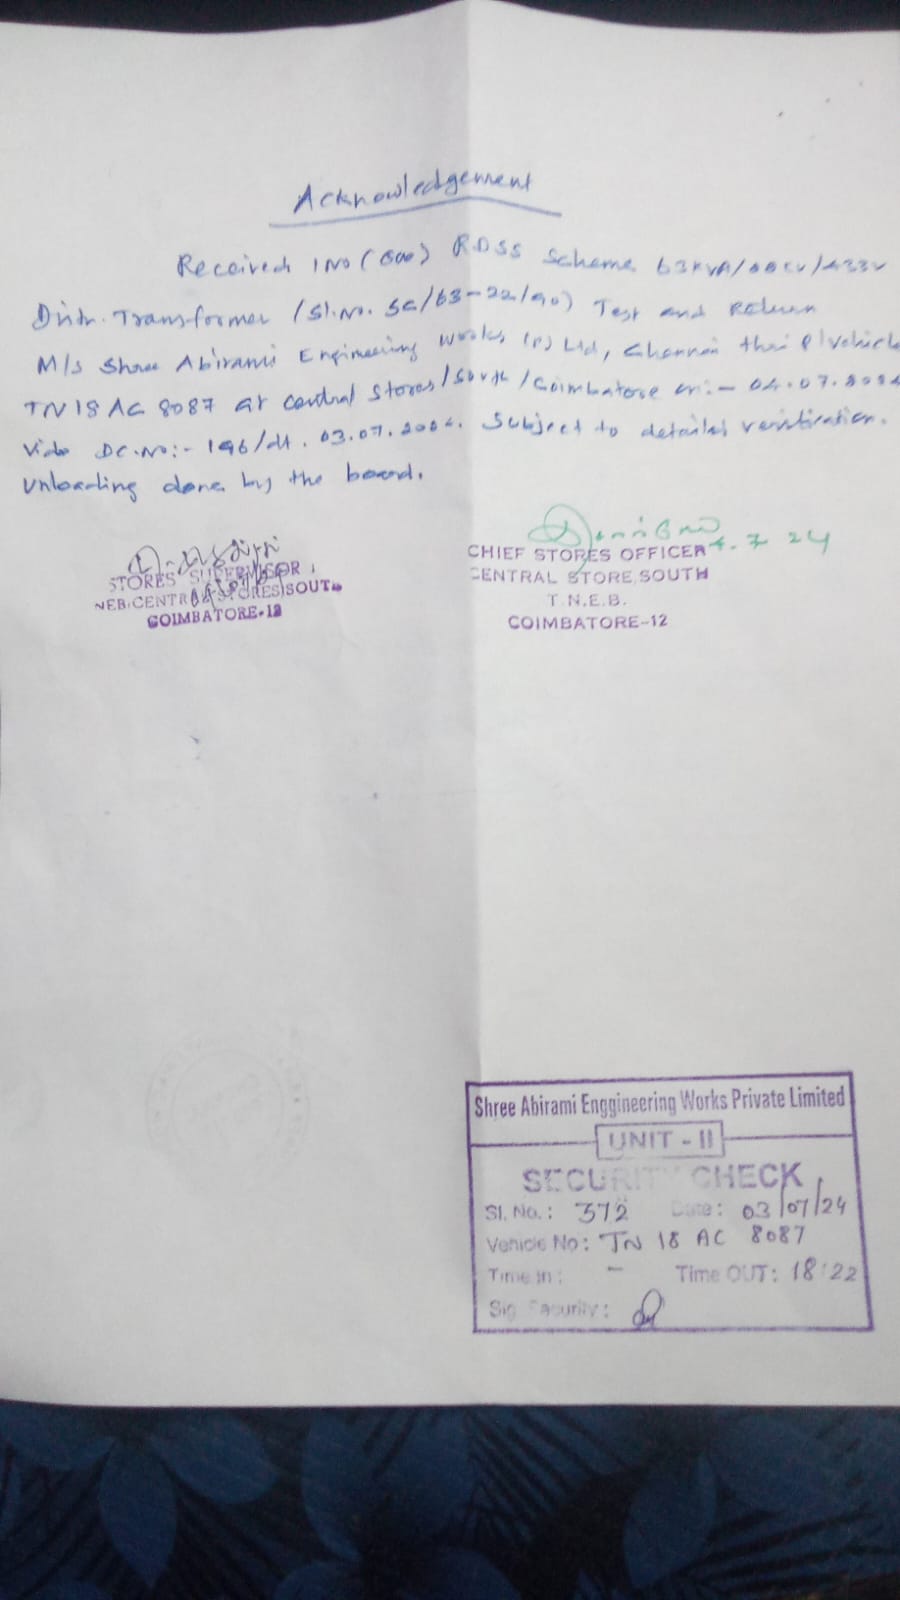 Acknowledgement
Received 1No (One) RDSS Scheme 63KVA/
Distn. Transformer (Sl.No. SE/63-22/90) Test and Return
M/s Shree Abirami Engineering Works (P) Ltd, Chennai thro P/Vehicle
TN 18 AC 8087 at Central Stores/South/Coimbatore on:- 04.07.2024
Vide DC.No:- 196/dt. 03.07.2024. Subject to detailed verification.
Unloading done by the board.
STORES SUPERVISOR
NEB/CENTRAL STORES/SOUTH
COIMBATORE-12
4.7.24
CHIEF STORES OFFICER
CENTRAL STORE, SOUTH
T.N.E.B.
COIMBATORE-12
Shree Abirami Enggineering Works Private Limited
UNIT - II
SECURITY CHECK
Sl. No.: 372 Date: 03/07/24
Vehicle No: TN 18 AC 8087
Time In: - Time OUT: 18:22
Sig. Security: